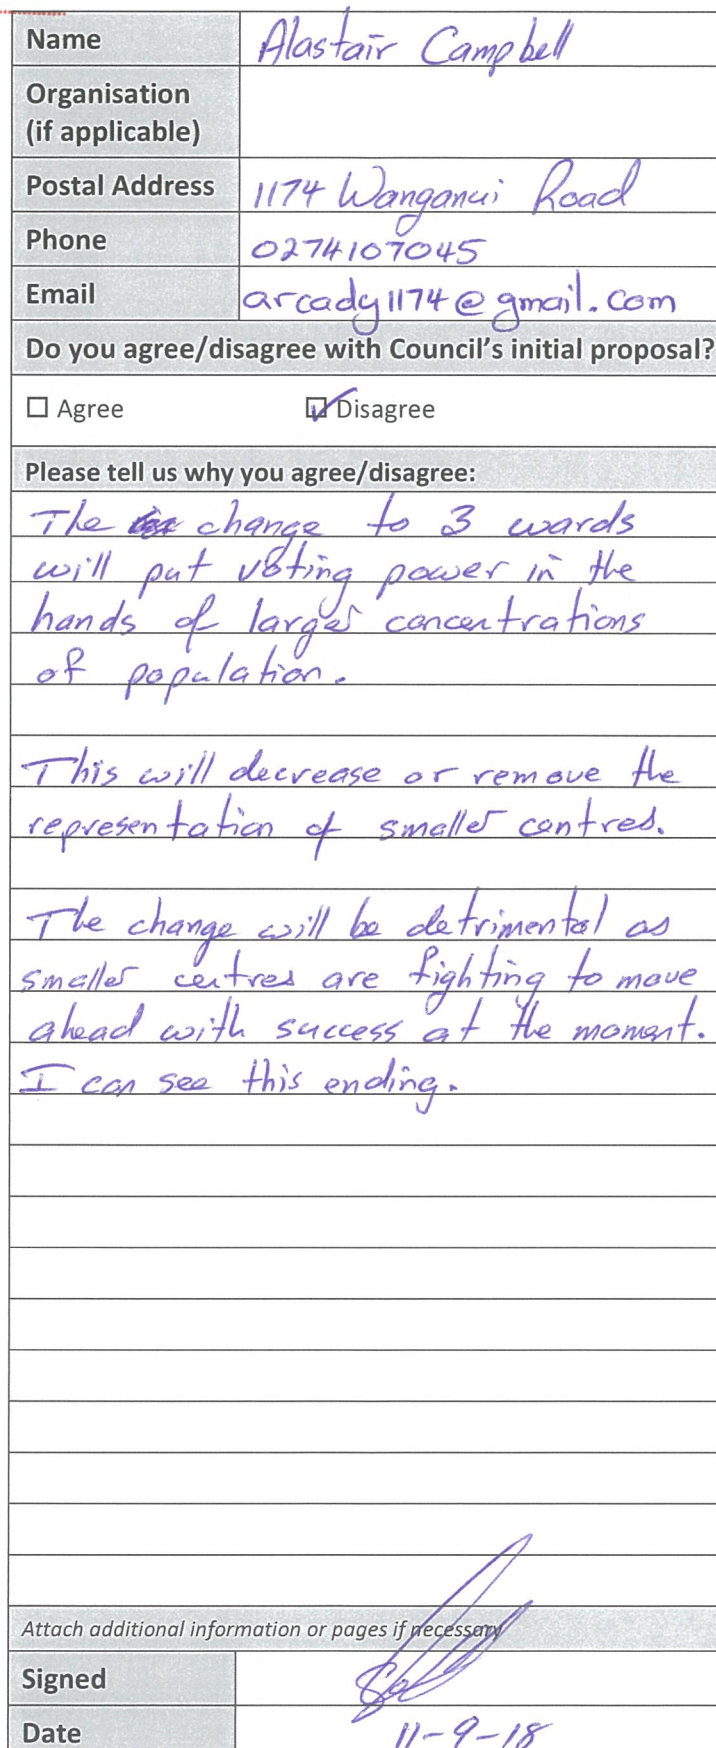 Name Alastair Campbell
Organisation
(if applicable)
Postal Address 1174 Wanganui Road
Phone 0274107045
Email arcady1174@gmail.com
Do you agree/disagree with Council's initial proposal?
☐ Agree ☑ Disagree
Please tell us why you agree/disagree:
The change to 3 wards
will put voting power in the
hands of larger concentrations
of population.
This will decrease or remove the
representation of smaller centres.
The change will be detrimental as
smaller centres are fighting to move
ahead with success at the moment.
I can see this ending.
Attach additional information or pages if necessary
Signed
Date 11-9-18